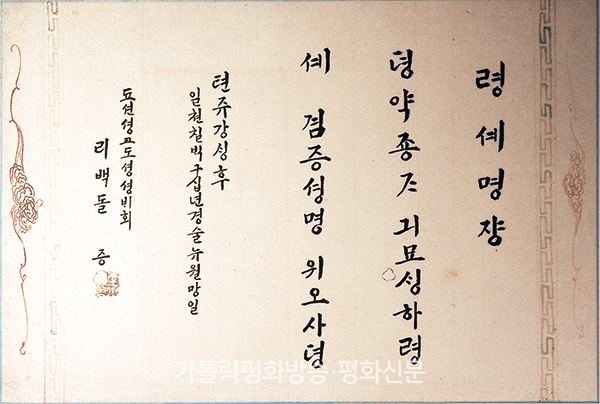 령셰명쟝
뎡약죵ᄌᆞ 긔묘싱하령
셰 겸증셩명 위오사뎡
텬쥬강싱후
일쳔칠빅구십년경술뉴월망일
됴션셩교도셩셩비회
리백돌 증
가톨릭평화방송·평화신문